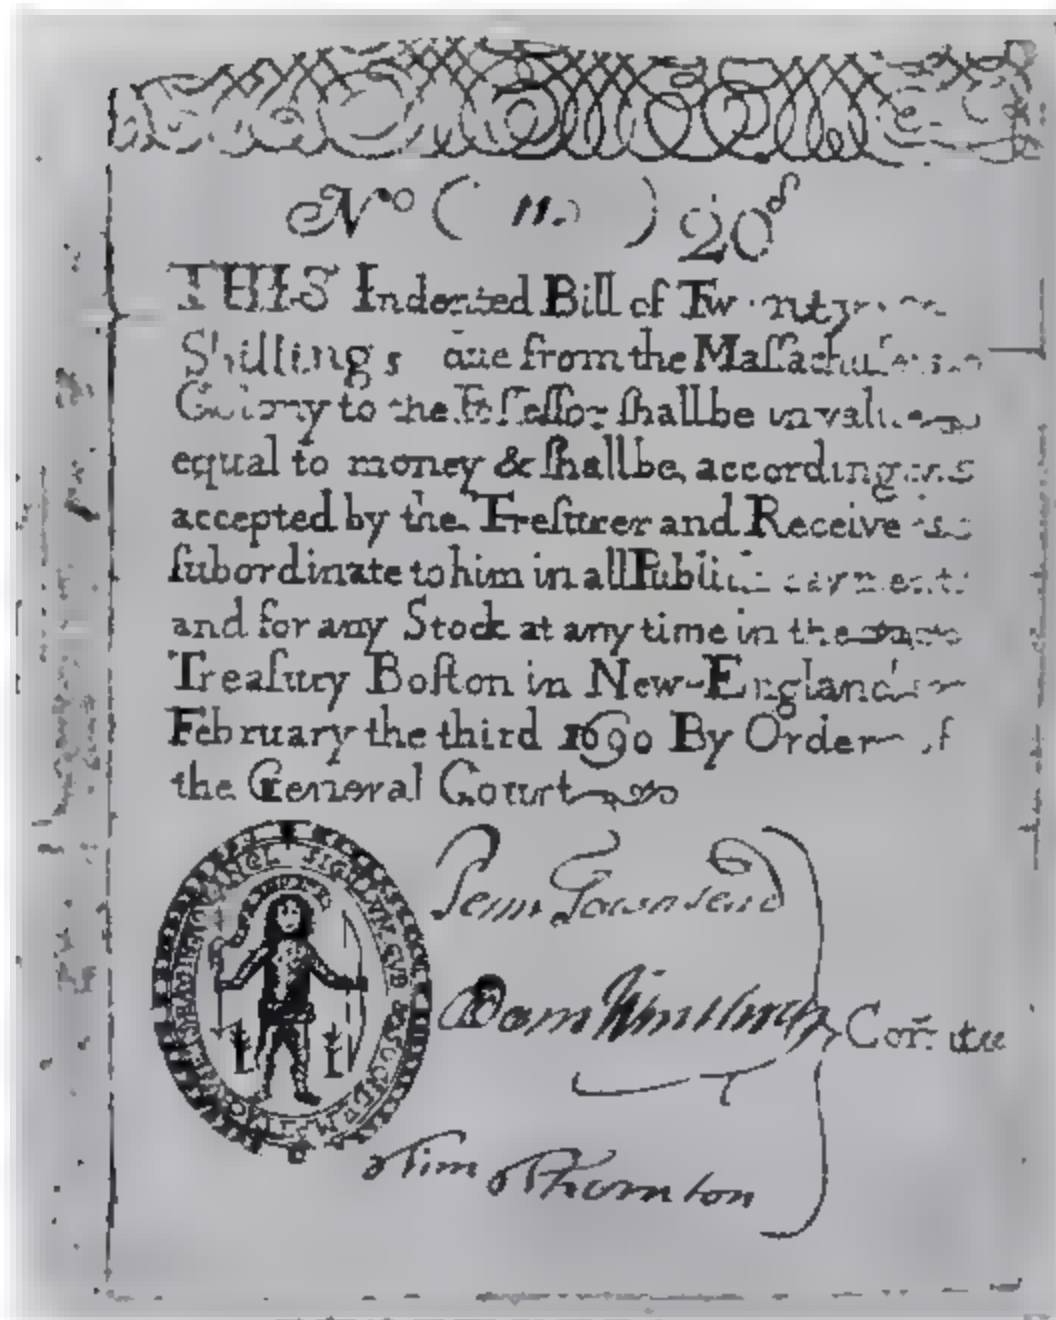 No ( 11. ) 20s
THIS Indented Bill of Twenty
Shillings due from the Maſſachuſetts
Colony to the Poſſeſſor ſhallbe in value
equal to money & ſhallbe accordingly
accepted by the Treſurer and Receivers
ſubordinate to him in all Publick payments
and for any Stock at any time in the
Treaſury Boſton in New-England
February the third 1690 By Order of
the General Court
Penn Townsend
Adam Winthrop
Comitee
Tim Thornton